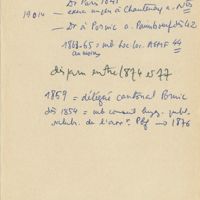 Dr Paris 1041
19014 exerce unifié à Chantenay s. Ntes
— Dr à Pornic a. Paimboeuf dès 42
1863-65 = mb Soc loc. AGMF 44
au moins
disparu entre 1874 et 77
1859 = délégué cantonal Pornic
dès 1854 = mb conseil hyg. publ.
salub. de l'arr<sup>t</sup> Pbf → 1876